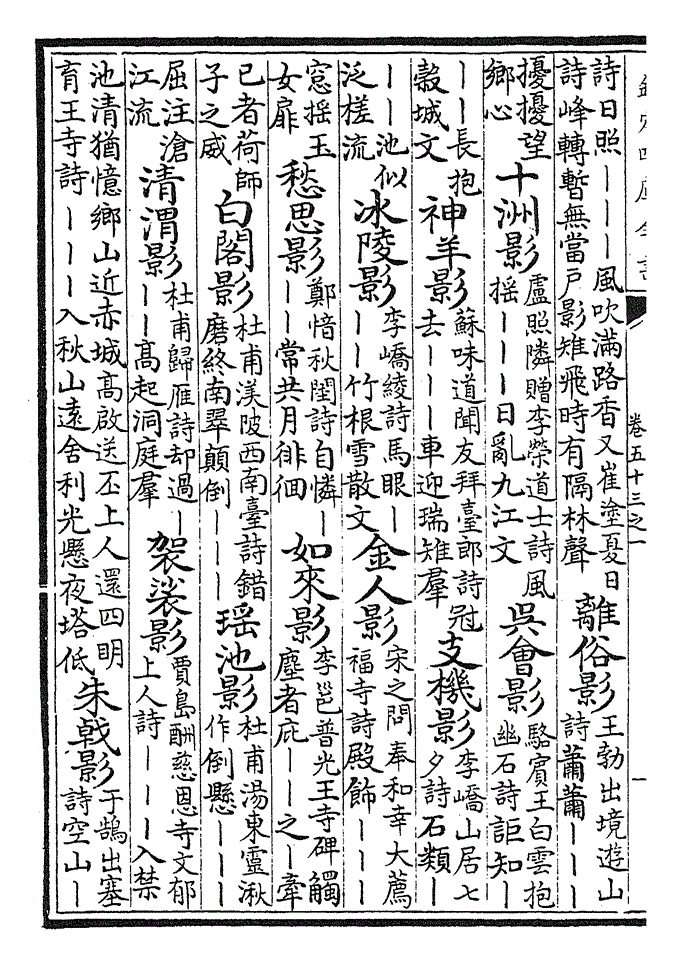 欽定四庫全書
卷五十三之一
詩日照｜｜｜風吹滿路香又崔塗夏日
詩峰轉暫無當戶影雉飛時有隔林聲
離俗影
王勃出境遊山
詩蕭蕭｜｜｜
擾擾望
鄉心
十洲影
盧照隣贈李榮道士詩風
搖｜｜｜日亂九江文
吳會影
駱賓王白雲抱
幽石詩詎知｜
｜｜長抱
穀城文
神羊影
蘇味道聞友拜臺郎詩冠
去｜｜｜車迎瑞雉羣
支機影
李嶠山居七
夕詩石類｜
｜｜池似
泛槎流
冰陵影
李嶠綾詩馬眼｜
｜｜竹根雪散文
金人影
宋之問奉和幸大薦
福寺詩殿飾｜｜｜
窓摇玉
女扉
愁思影
鄭愔秋閨詩自憐｜
｜｜常共月徘徊
如來影
李邕普光王寺碑觸
塵者庇｜｜之｜牽
已者荷師
子之威
白閣影
杜甫渼陂西南臺詩錯
磨終南翠顛倒｜｜｜
瑶池影
杜甫湯東靈湫
作倒懸｜｜｜
屈注滄
江流
清渭影
杜甫歸雁詩却過｜
｜｜高起洞庭羣
袈裟影
賈島酬慈恩寺文郁
上人詩｜｜｜入禁
池清猶憶鄉山近赤城高啟送丕上人還四明
育王寺詩｜｜｜入秋山遠舍利光懸夜塔低
朱戟影
于鵠出塞
詩空山｜